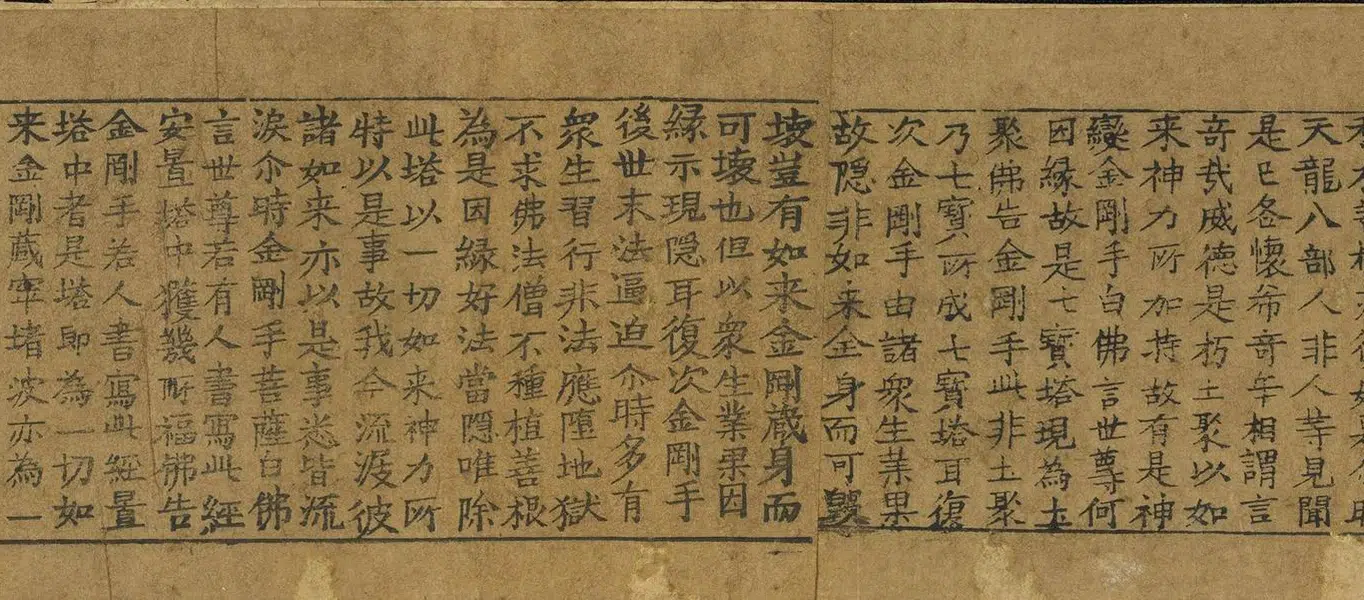 天龍八部人非人等見聞
是已各懷希奇㸦相謂言
奇哉威德是朽土聚以如
来神力所加持故有是神
變金剛手白佛言世尊何
因緣故是七寶塔現為土
聚佛告金剛手此非土聚
乃七寶所成七寶塔耳復
次金剛手由諸衆生業果
故隱非如来全身而可毀
壊豈有如来金剛蔵身而
可壊也但以衆生業果因
緣示現隱耳復次金剛手
後世末法逼迫尒時多有
衆生習行非法應墮地獄
不求佛法僧不種植善根
為是因緣好法當隱唯除
此塔以一切如来神力所
特以是事故我今流淚彼
諸如来亦以是事悉皆流
淚尒時金剛手菩薩白佛
言世尊若有人書寫此經
安置塔中獲幾所福佛告
金剛手若人書寫此經置
塔中者是塔即為一切如
来金剛蔵窣堵波亦為一